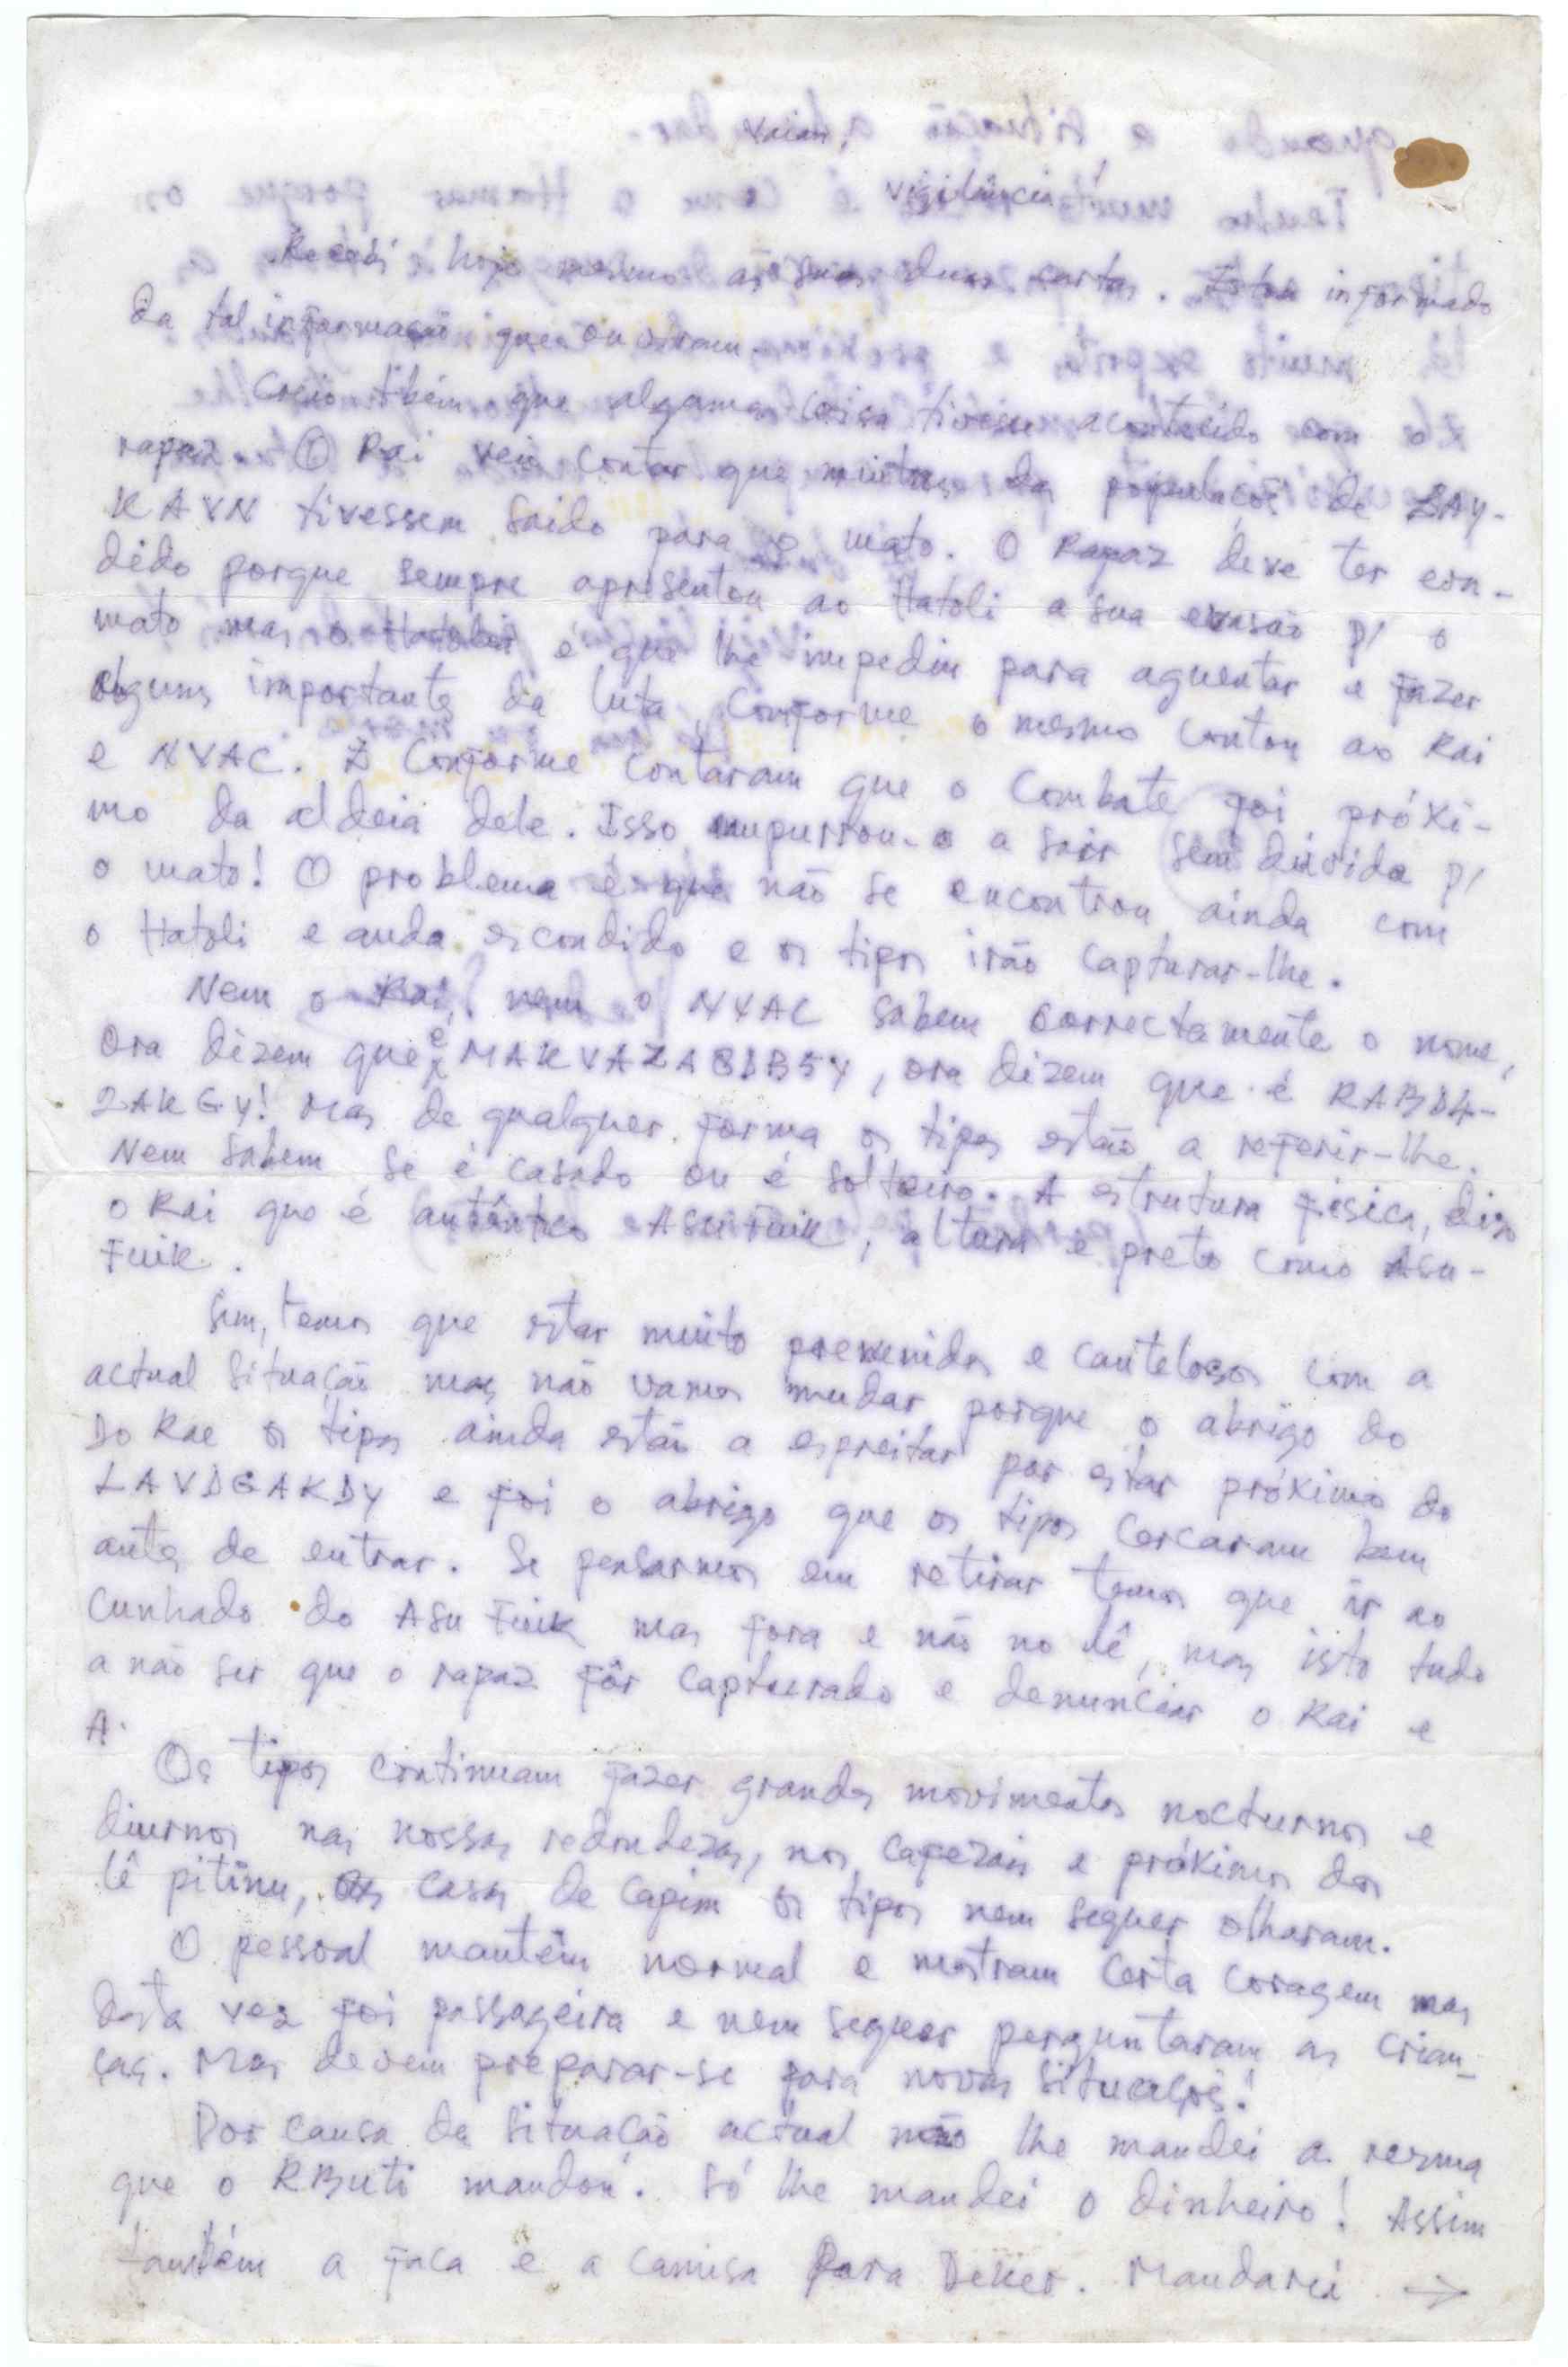 Vaian,
Vigilância!
Recebi hoje mesmo as suas duas cartas. Estou informado
da tal informação que ouviram.
Creio tbém que algumas coisa tivesse acontecido com o
rapaz. O Rai veio contar que muitas da populações de
KAVN tivessem saido para o mato. O Rapaz deve ter
dido porque sempre apresentou ao Hatoli a sua evasão p/ o
mato mas o Hatoli é que lhe impediu para aguentar e fazer
alguns importantes da luta, conforme o mesmo contou ao Rai
e NVAC. Conforme contaram que o combate foi próxi-
mo da aldeia dele. Isso empurrou-o a sair sem dúvida p/
o mato! O problema é que não se encontrou ainda com
o Hatoli e anda escondido e os tipos irão capturar-lhe.
Nem o Rai, nem o NVAC sabem correctamente o nome,
Ora dizem que é , ora dizem que é
2AKGY! Mas de qualquer forma os tipos estão a referir-lhe.
Nem sabem se é casado ou é solteiro. A estrutura física, diz
o Rai que é autêntico Asu Fuik, altura e preto como Asu-
Fuik.
Sim, temos que estar muito prevenidos e cautelosos com a
actual situação mas não vamos mudar, porque o abrigo do
Do Rae os tipos ainda estão a espreitar por estar próximo do
LAVDGAKDY e foi o abrigo que os tipos cercaram bem
antes de entrar. Se pensarmos em retirar temos que ir ao
cunhado do Asu Fuik mas fora e não no lê, mas isto tudo
a não ser que o rapaz fôr capturado e denunciar o Rai e
A.
Os tipos continuam fazer grandes movimentos nocturnos e
diurnos nas nossas redondezas, nos capezais e próximos dos
lê pitinu, as casas de capim os tipos nem sequer olharam.
O pessoal mantêm normal e mostram certa coragem mas
desta vez foi passageira e nem sequer perguntaram as crian-
ças. Mas devem preparar-se para novas situações!
Por causa da situação actual não lhe mandei a resma
que o RButi mandou. Só lhe mandei o dinheiro! Assim
também a faca e a camisa para Deker. Mandarei →